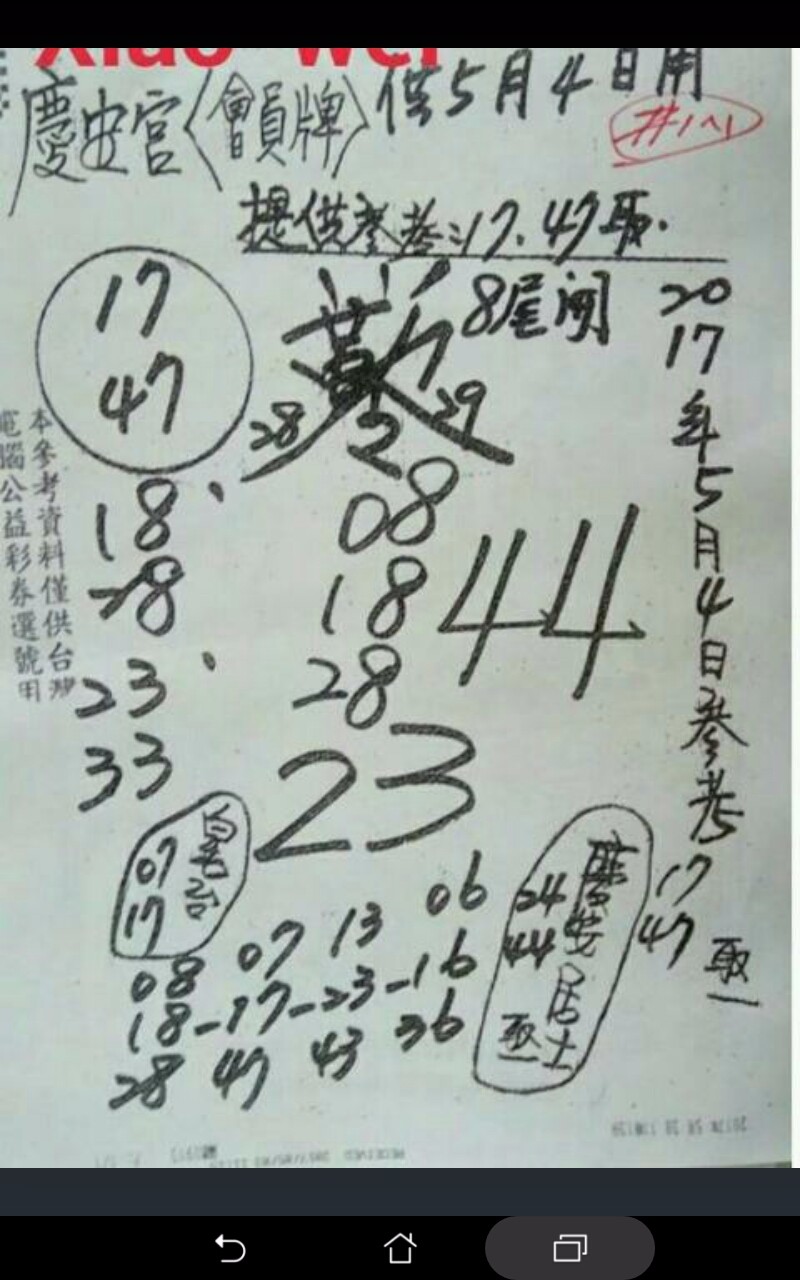 Xiao wei
慶安宮〈會員牌〉供5月4日用
提供參考:17.47取.
17
47
8尾開
28 2 29
18、
28
23、
33
08
18
28
44
23
2017年5月4日參考
17
47 取一
本參考資料僅供台灣
電腦公益彩券選號用
07
17
08 07 13 06
18-17-23-16
28 47 43 36
慶安居士
24
44
取一